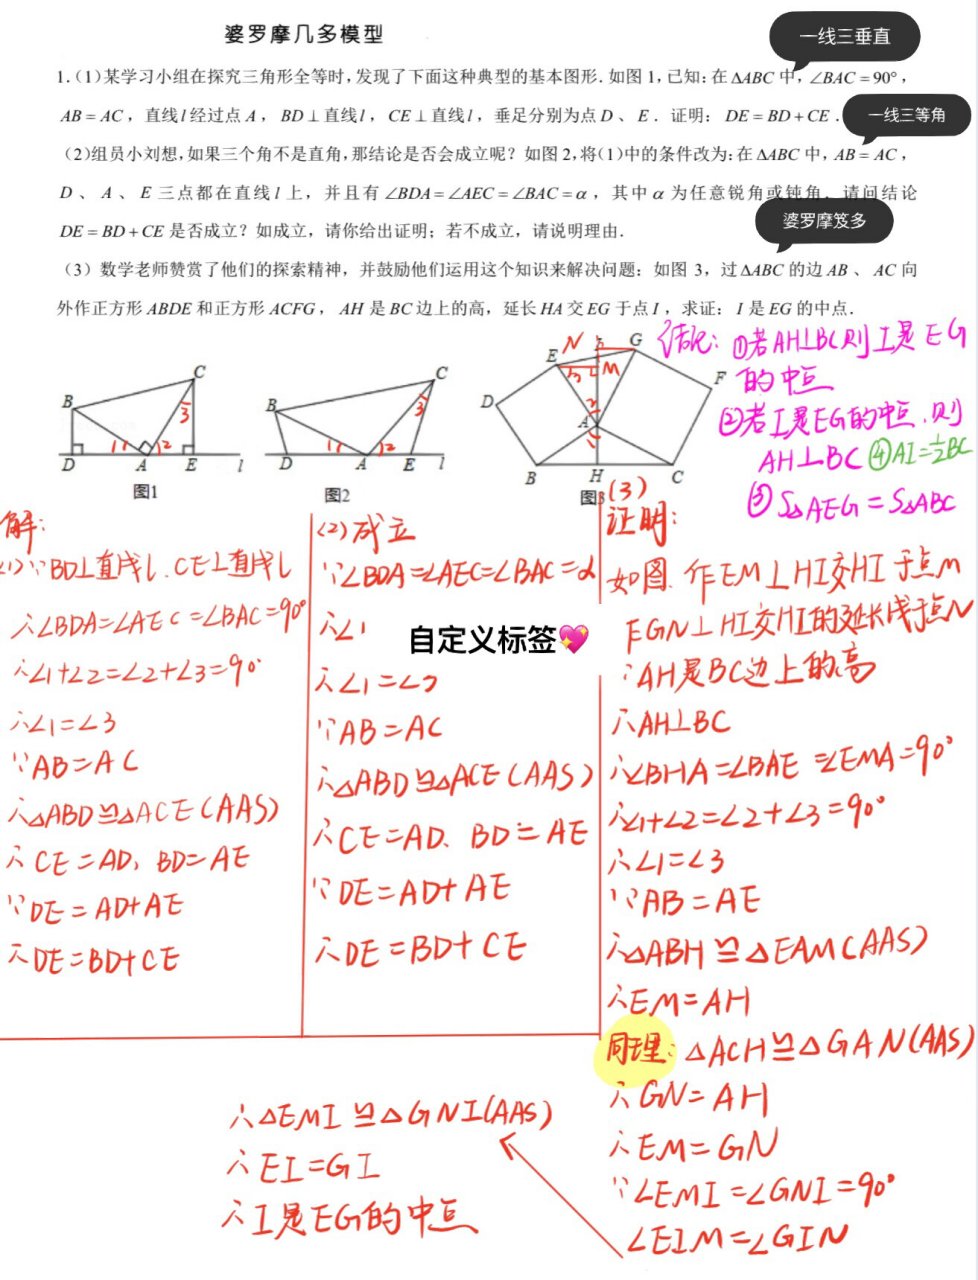 婆罗摩几多模型
一线三垂直
1.(1)某学习小组在探究三角形全等时,发现了下面这种典型的基本图形.如图1,已知:在△ABC中,∠BAC=90°,
AB=AC，直线l经过点A，BD⊥直线l，CE⊥直线l，垂足分别为点D、E．证明：DE=BD+CE．
一线三等角
(2)组员小刘想,如果三个角不是直角,那结论是否会成立呢？如图2,将(1)中的条件改为:在△ABC中,AB=AC，
D、A、E三点都在直线l上，并且有∠BDA=∠AEC=∠BAC=α，其中α为任意锐角或钝角．请问结论
DE=BD+CE是否成立？如成立，请你给出证明；若不成立，请说明理由．
婆罗摩笈多
(3）数学老师赞赏了他们的探索精神，并鼓励他们运用这个知识来解决问题：如图3，过△ABC的边AB、AC向
外作正方形ABDE和正方形ACFG，AH是BC边上的高，延长HA交EG于点I，求证：I是EG的中点．
结论：①若AH⊥BC则I是EG
的中点
②若I是EG的中点，则
AH⊥BC ④AI=½BC
③S△AEG=S△ABC
B C D A E l 1 2 3
图1
B C D A E l 1 2 3
图2
D E N I G M F A B H C 3 2 1
图3
解：
(1)∵BD⊥直线l、CE⊥直线l
∴∠BDA=∠AEC=∠BAC=90°
∴∠1+∠2=∠2+∠3=90°
∴∠1=∠3
∵AB=AC
∴△ABD≌△ACE(AAS)
∴CE=AD，BD=AE
∵DE=AD+AE
∴DE=BD+CE
(2)成立
∵∠BDA=∠AEC=∠BAC=α
∴∠1
自定义标签💖
∴∠1=∠3
∵AB=AC
∴△ABD≌△ACE(AAS)
∴CE=AD、BD=AE
∵DE=AD+AE
∴DE=BD+CE
(3)
证明：
如图．作EM⊥HI交HI于点M
作GN⊥HI交HI的延长线于点N
∵AH是BC边上的高
∴AH⊥BC
∴∠BHA=∠BAE=∠EMA=90°
∴∠1+∠2=∠2+∠3=90°
∴∠1=∠3
∵AB=AE
∴△ABH≌△EAM(AAS)
∴EM=AH
同理：△ACH≌△GAN(AAS)
∴GN=AH
∴EM=GN
∵∠EMI=∠GNI=90°
∠EIM=∠GIN
∴△EMI≌△GNI(AAS)
∴EI=GI
∴I是EG的中点